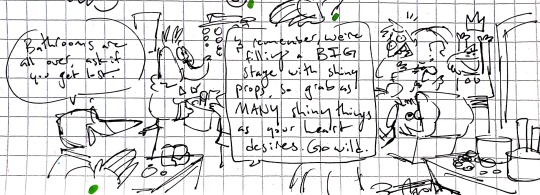 Bathrooms are
all over, ask if
you get lost.
& remember, we're
filling a BIG
stage with shiny
props, so grab as
MANY shiny things
as your heart
desires. Go wild.